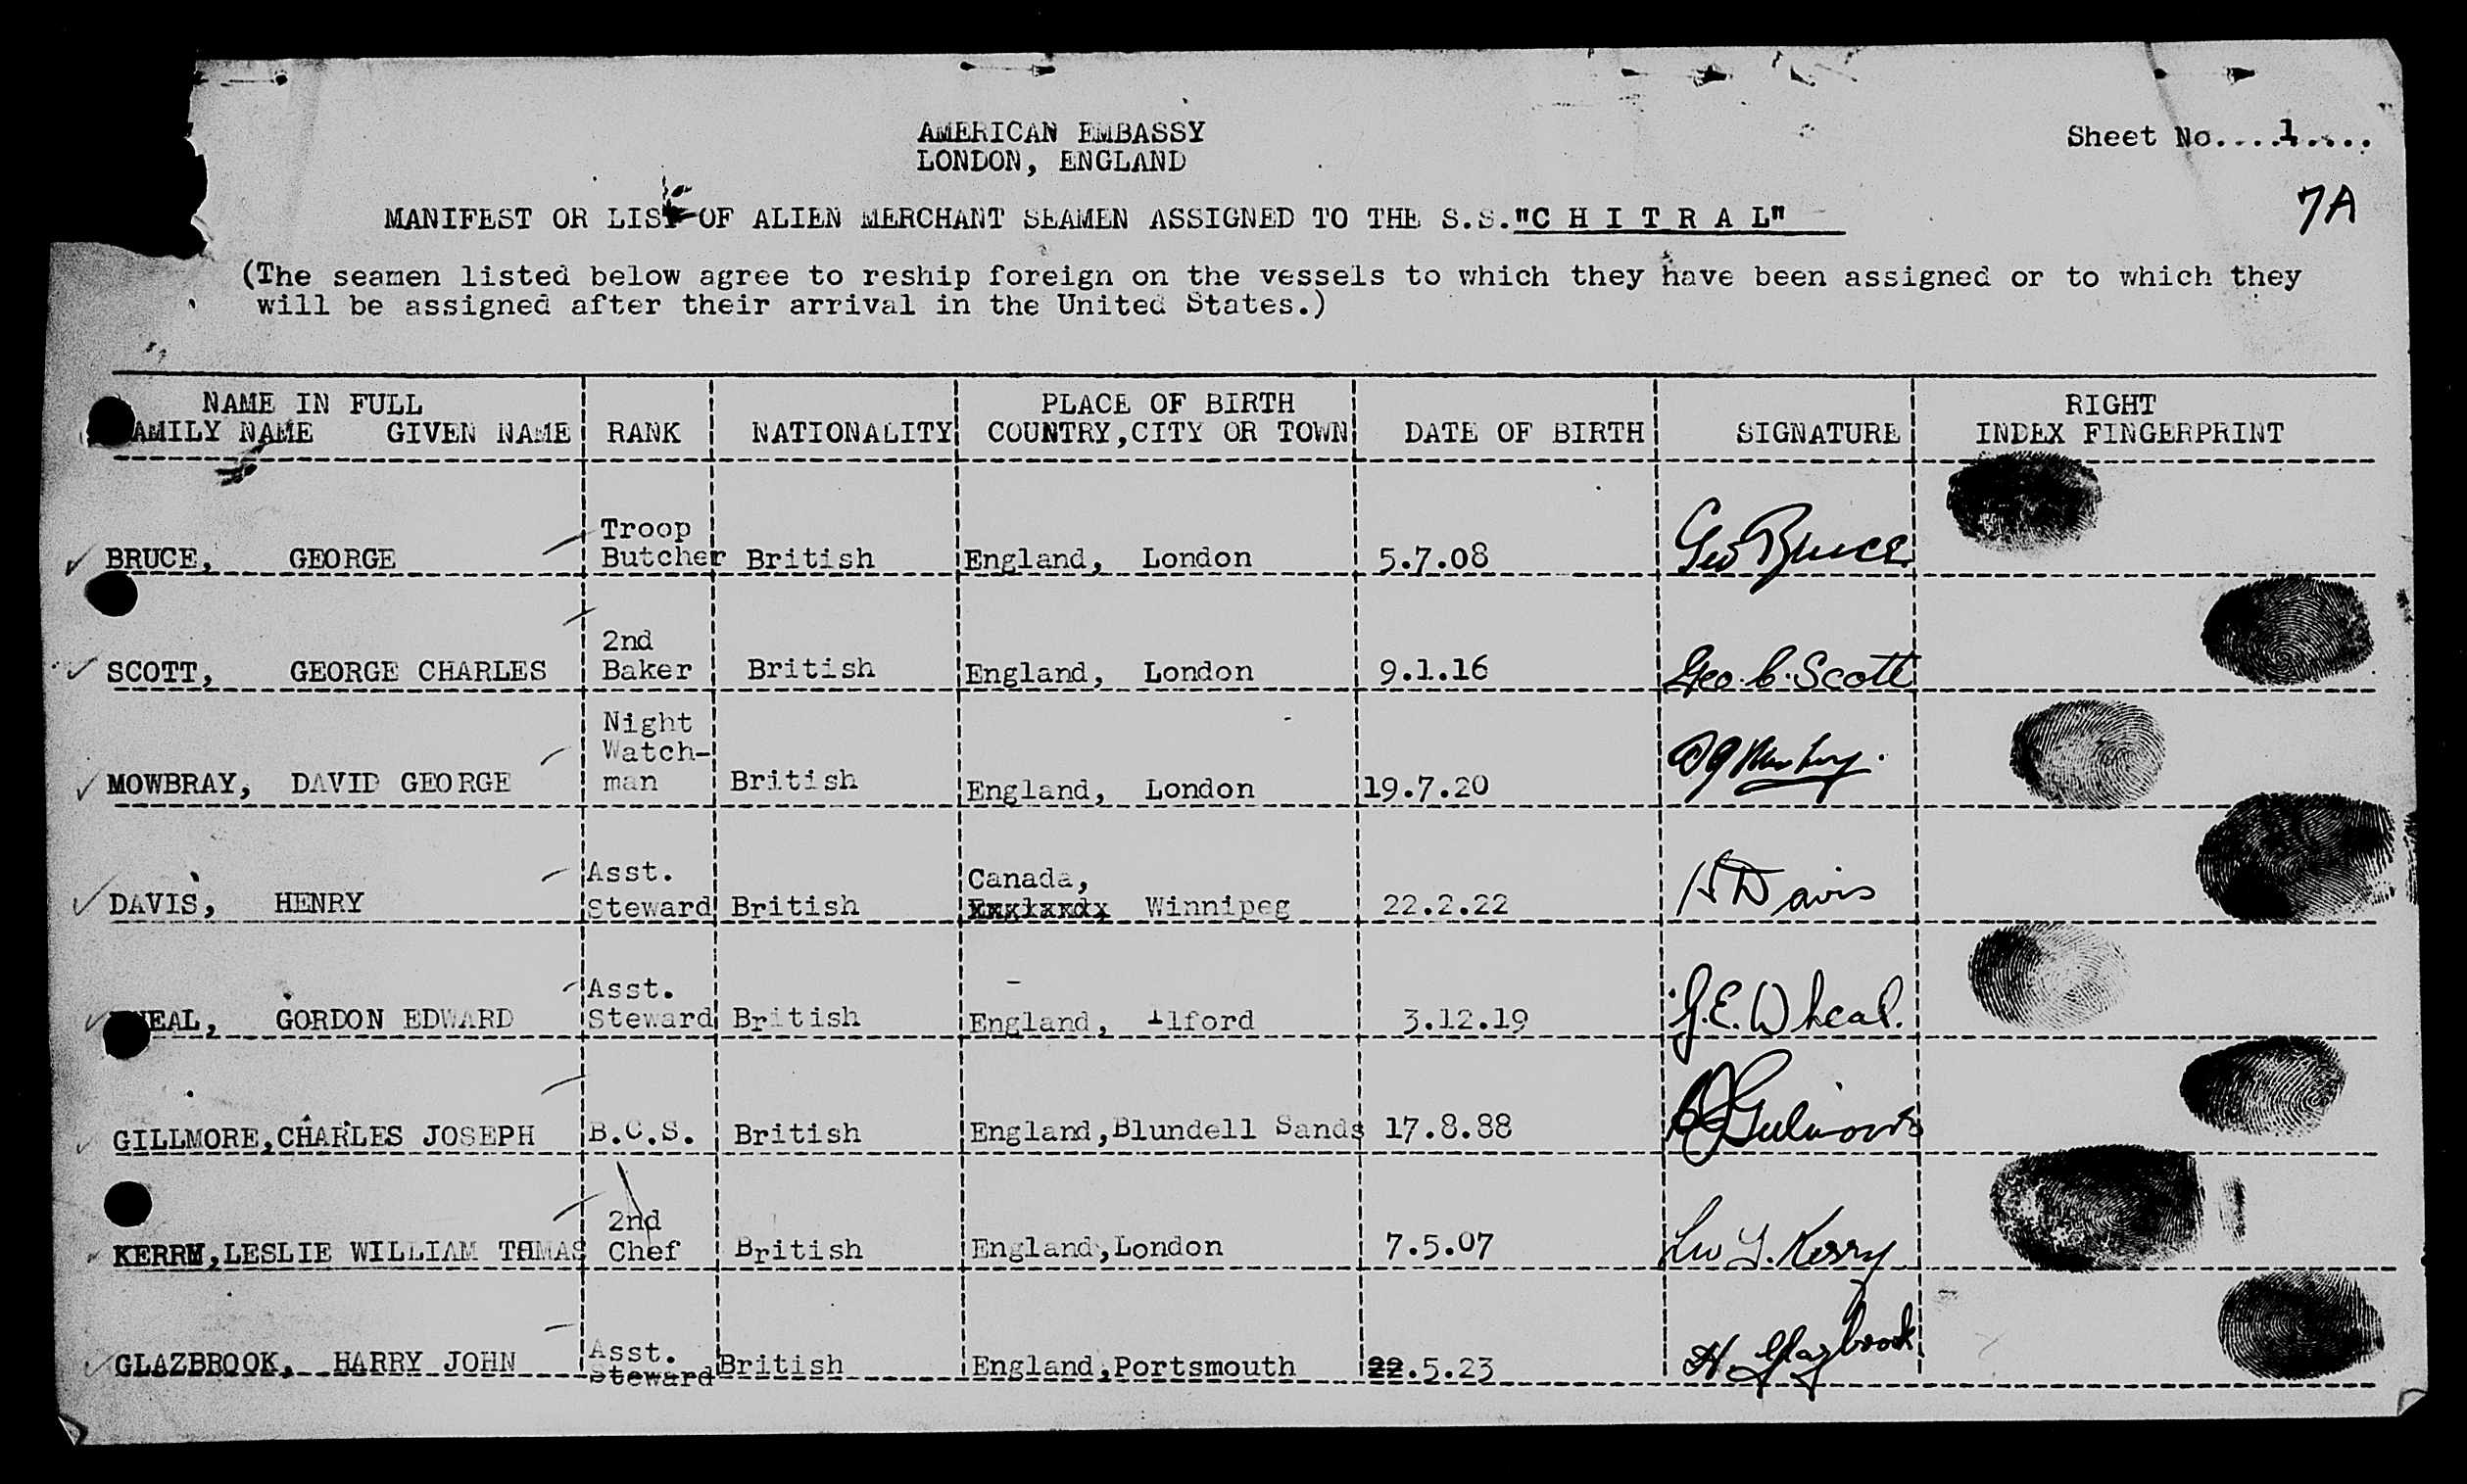 AMERICAN EMBASSY
LONDON, ENGLAND
Sheet No....1....
7A
MANIFEST OR LIST OF ALIEN MERCHANT SEAMEN ASSIGNED TO THE S.S."C H I T R A L"
(The seamen listed below agree to reship foreign on the vessels to which they have been assigned or to which they
will be assigned after their arrival in the United States.)
NAME IN FULL PLACE OF BIRTH RIGHT
FAMILY NAME GIVEN NAME RANK NATIONALITY COUNTRY,CITY OR TOWN DATE OF BIRTH SIGNATURE INDEX FINGERPRINT
Troop
BRUCE, GEORGE Butcher British England, London 5.7.08 Geo Bruce
2nd
SCOTT, GEORGE CHARLES Baker British England, London 9.1.16 Geo. C. Scott
Night
Watch-
MOWBRAY, DAVID GEORGE man British England, London 19.7.20
Asst. Canada,
DAVIS, HENRY Steward British Winnipeg 22.2.22 H Davis
Asst.
HEAL, GORDON EDWARD Steward British England, Ilford 3.12.19 G.E. Wheal.
GILLMORE,CHARLES JOSEPH B.C.S. British England,Blundell Sands 17.8.88
2nd
KERRM,LESLIE WILLIAM THMAS Chef British England,London 7.5.07 Kerry
Asst.
GLAZBROOK, HARRY JOHN Steward British England,Portsmouth 22.5.23 H. Glazbrook